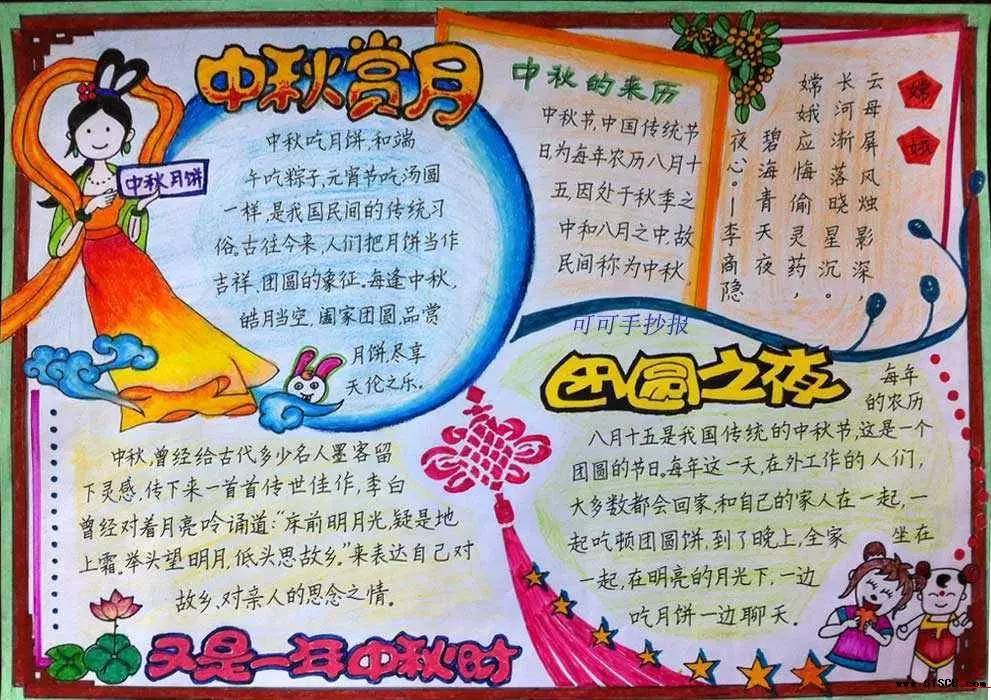 中秋赏月
中秋月饼
中秋吃月饼,和端
午吃粽子,元宵节吃汤圆
一样,是我国民间的传统习
俗。古往今来,人们把月饼当作
吉祥、团圆的象征。每逢中秋,
皓月当空,阖家团圆,品赏
月饼,尽享
天伦之乐。
中秋的来历
中秋节,中国传统节
日为每年农历八月十
五,因处于秋季之
中和八月之中,故
民间称为中秋,
嫦
娥
云母屏风烛影深,
长河渐落晓星沉。
嫦娥应悔偷灵药,
碧海青天夜
夜心。—李商隐
可可手抄报
团圆之夜
每年
的农历
八月十五是我国传统的中秋节,这是一个
团圆的节日。每年这一天,在外工作的人们,
大多数都会回家,和自己的家人在一起,一
起吃顿团圆饼,到了晚上,全家坐在
一起,在明亮的月光下,一边
吃月饼一边聊天.
中秋,曾经给古代多少名人墨客留
下灵感,传下来一首首传世佳作,李白
曾经对着月亮吟诵道:“床前明月光,疑是地
上霜。举头望明月,低头思故乡。”来表达自己对
故乡、对亲人的思念之情。
又是一年中秋时